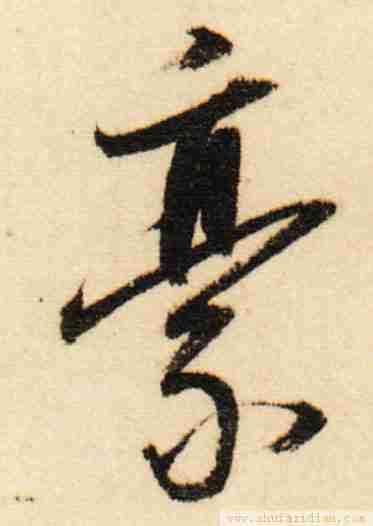 豪
www.shufazidian.com